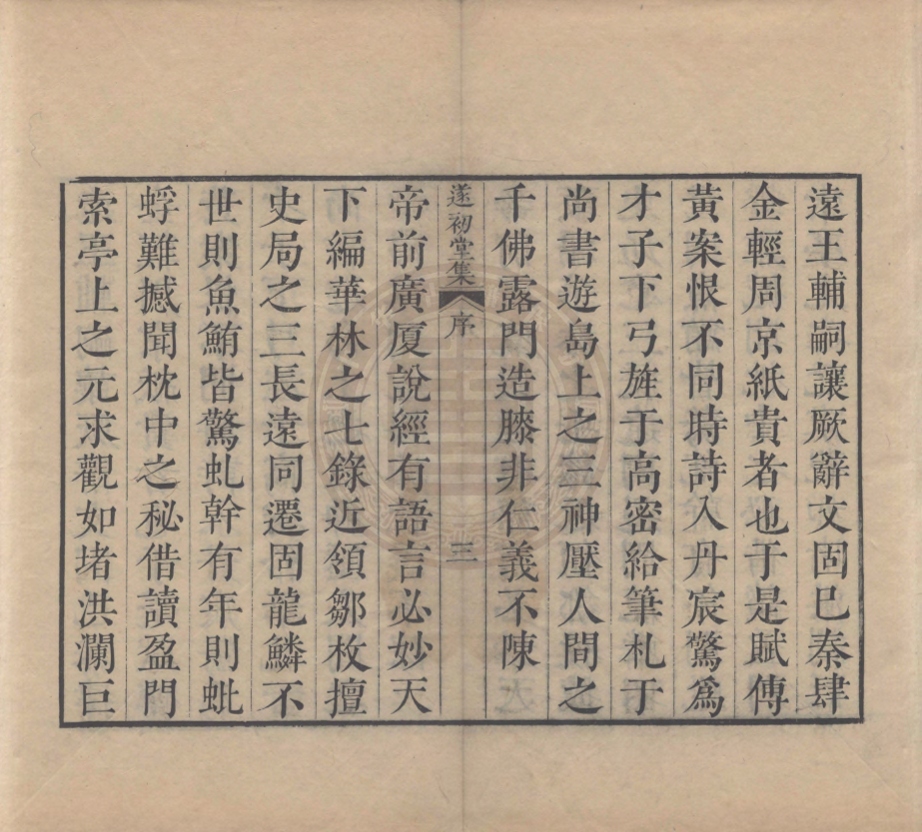 遠王輔嗣讓厥辭文固巳秦肆
金輕周京紙貴者也于是賦傳
黃案恨不同時詩入丹宸驚爲
才子下弓旌于高密給筆札于
尚書遊島上之三神壓人間之
千佛露門造膝非仁義不陳
遂初堂集 序 三
帝前廣厦說經有語言必妙天
下編華林之七錄近領鄒枚擅
史局之三長遠同遷固龍鱗不
世則魚鮪皆驚虬幹有年則蚍
蜉難撼聞枕中之秘借讀盈門
索亭上之元求觀如堵洪瀾巨